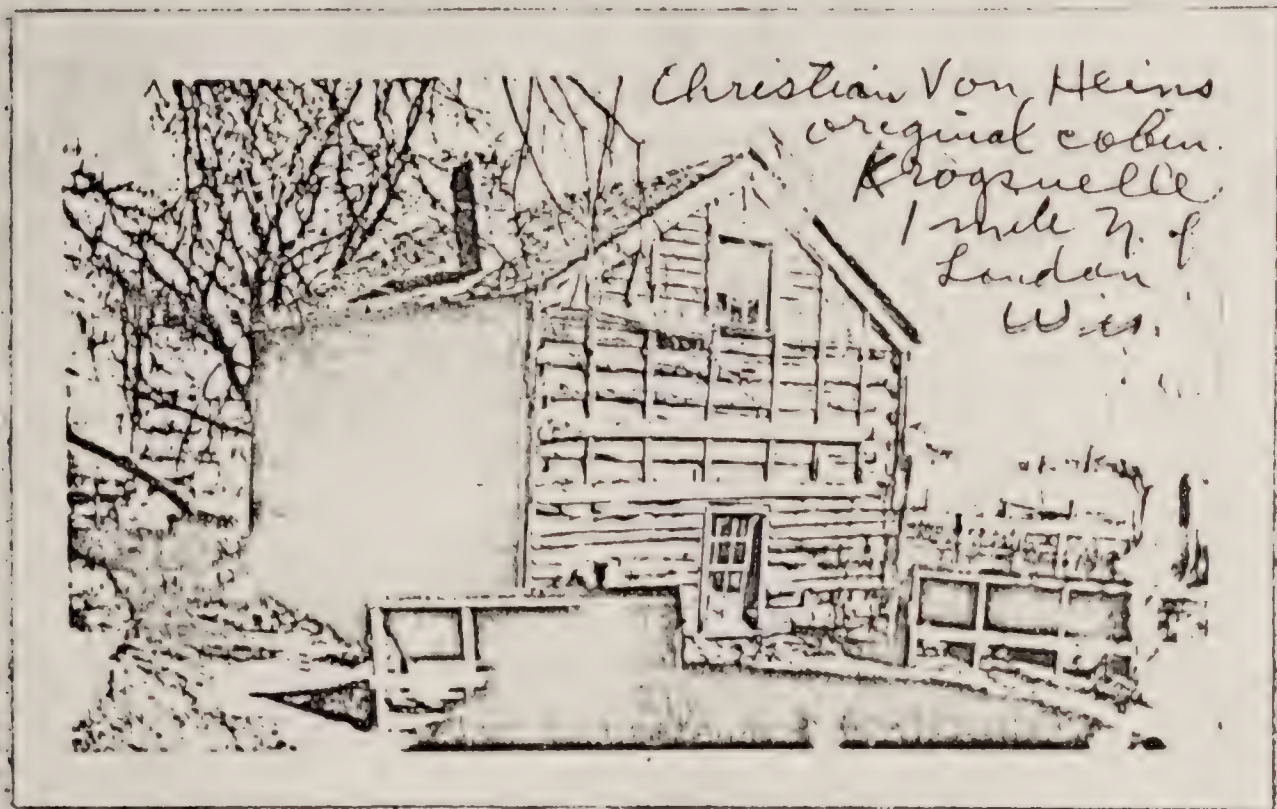 Christian Von Heins
original cabin.
Krogsville
1 mile N. of
London
Wis.